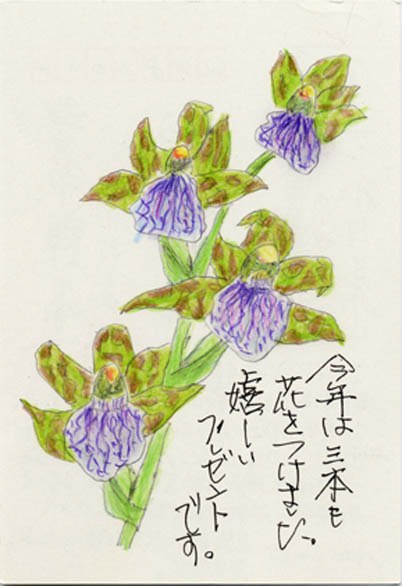 今年は三本も
花をつけました。
嬉しい
プレゼント
です。